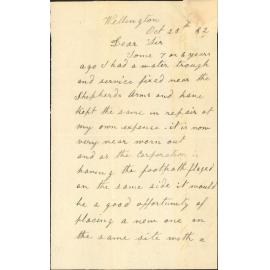 Wellington
Oct 20th 82
Dear Sir
Some 7 or 8 years
ago I had a water trough
and service fixed near the
Shepherds Arms and have
kept the same in repair at
my own expense. it is now
very near worn out
and as the Corporation is
having the footpath flaged
on the same side it would
be a good oppertunity of
placing a new one on
the same site with a